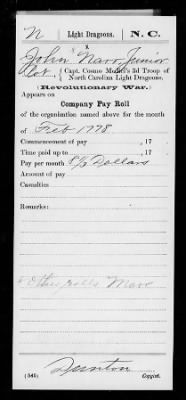 N | Light Dragoons. | N. C.
x
John Narr, Junior
Cor., Capt. Cosmo Medici's 3d Troop of
North Carolina Light Dragoons.
(Revolutionary War.)
Appears on
Company Pay Roll
of the organization named above for the month
of Feb 1778.
Commencement of pay , 17 .
Time paid up to , 17 .
Pay per month 8⅓ Dollars
Amount of pay
Casualties
Remarks:
x Other rolls Marr
Dunton
(545) Copyist.